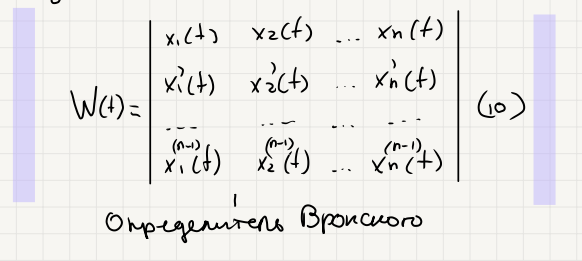 x₁(t) x₂(t) ... xn(t)
x₁'(t) x₂'(t) ... xn'(t)
W(t)= ... ... ... ... (10)
x₁⁽ⁿ⁻¹⁾(t) x₂⁽ⁿ⁻¹⁾(t) ... xn⁽ⁿ⁻¹⁾(t)
Определитель Вронского